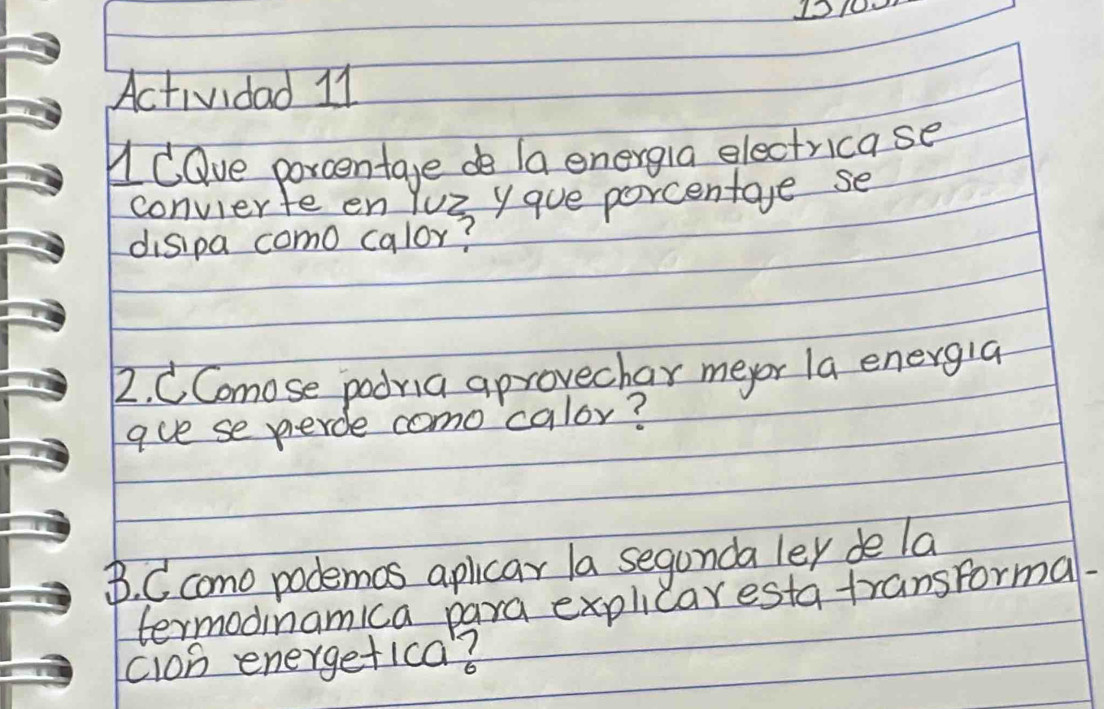 Actividad 11
1 ¿Que porcentaje de la energia electrica se
convierte en luz y que porcentaje se
disipa como calor?
2. ¿Como se podria aprovechar mejor la energia
que se pierde como calor?
3. ¿como podemos aplicar la segunda ley de la
termodinamica para explicar esta transforma-
cion energetica?